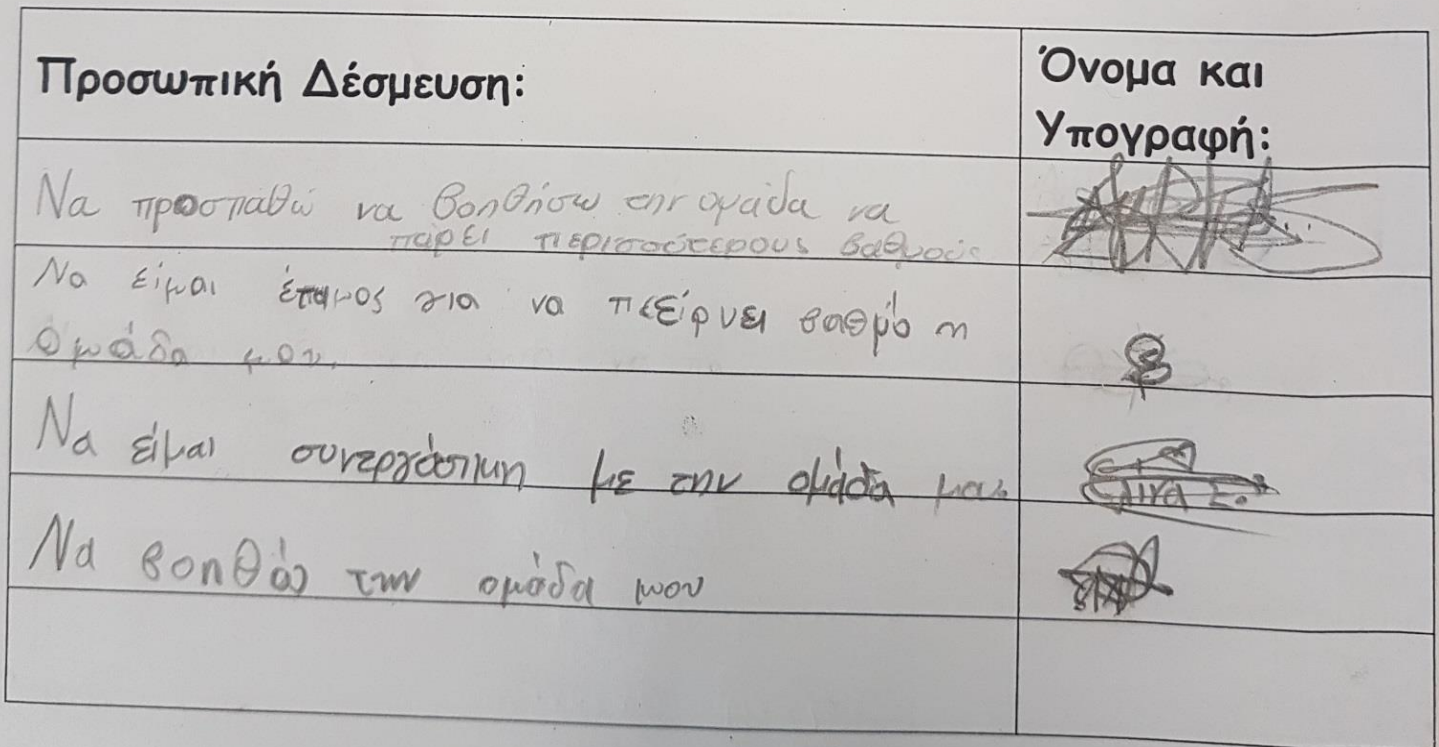 Προσωπική Δέσμευση:
Όνομα και
Υπογραφή:
Να προσπαθώ να βοηθήσω την ομάδα να
πάρει περισσότερους βαθμούς
Να είμαι έτιμος για να πεξίρνει βαθμό η
ομάδα μου.
Να είμαι συνεργάσιμη με την ομάδα μας
Ελινα Σ.
Να βοηθάω την ομάδα μου